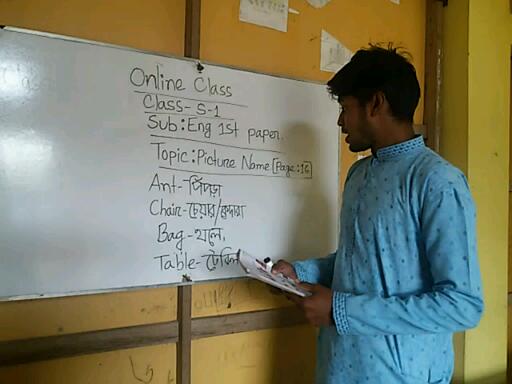 Online Class
Class- S-1
Sub: Eng 1st paper.
Topic: Picture Name [Page: 16]
Ant- পিঁপড়া
Chair- চেয়ার/কেদারা
Bag- থলে,
Table- টেবিল